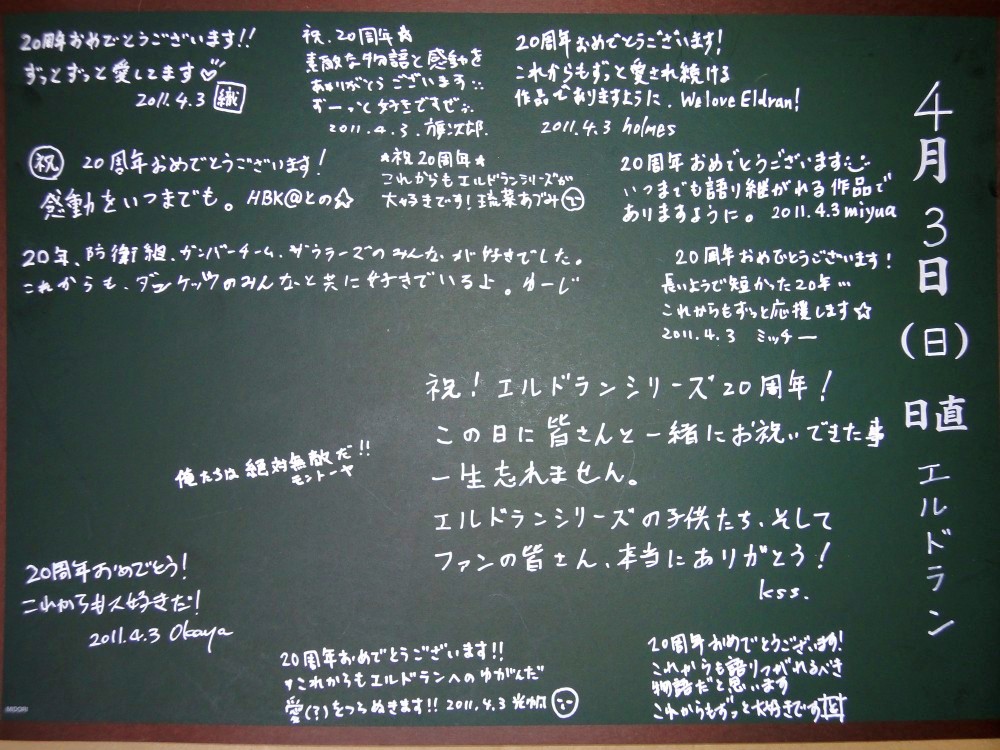 20周年おめでとうございます!!
ずっとずっと愛してます♡
2011.4.3 織
祝.20周年☆
素敵な物語と感動を
ありがとうございます
ずーっと好きですぜ
2011.4.3.旗次郎.
20周年おめでとうございます!
これからもずっと愛され続ける
作品でありますように. We love Eldran!
2011.4.3 holmes
祝 20周年おめでとうございます!
感動をいつまでも。HBK@との☆
★祝20周年★
これからもエルドランシリーズが
大好きです!琉菜あづみ
20周年おめでとうございます
いつまでも語り継がれる作品で
ありますように。2011.4.3 miyua
20年、防衛組、ガンバーチーム、ザウラーズのみんなが好きでした。
これからも、ダンケッツのみんなと共に好きでいるよ。ゆーじ
20周年おめでとうございます!
長いようで短かった20年…
これからもずっと応援します☆
2011.4.3 ミッチー
祝!エルドランシリーズ20周年!
この日に皆さんと一緒にお祝いできた事
一生忘れません。
エルドランシリーズの子供たち、そして
ファンの皆さん、本当にありがとう!
kss.
俺たちは絶対無敵だ!!
モントーヤ
20周年おめでとう!
これからも大好きだ!
2011.4.3 Okaya
20周年おめでとうございます!!
これからもエルドランへのゆがんだ
愛(?)をつらぬきます!! 2011.4.3
20周年おめでとうございます!
これからも語りつがれるべき
物語だと思います
これからもずっと大好きです
4月3日(日)
日直
エルドラン
MIDORI